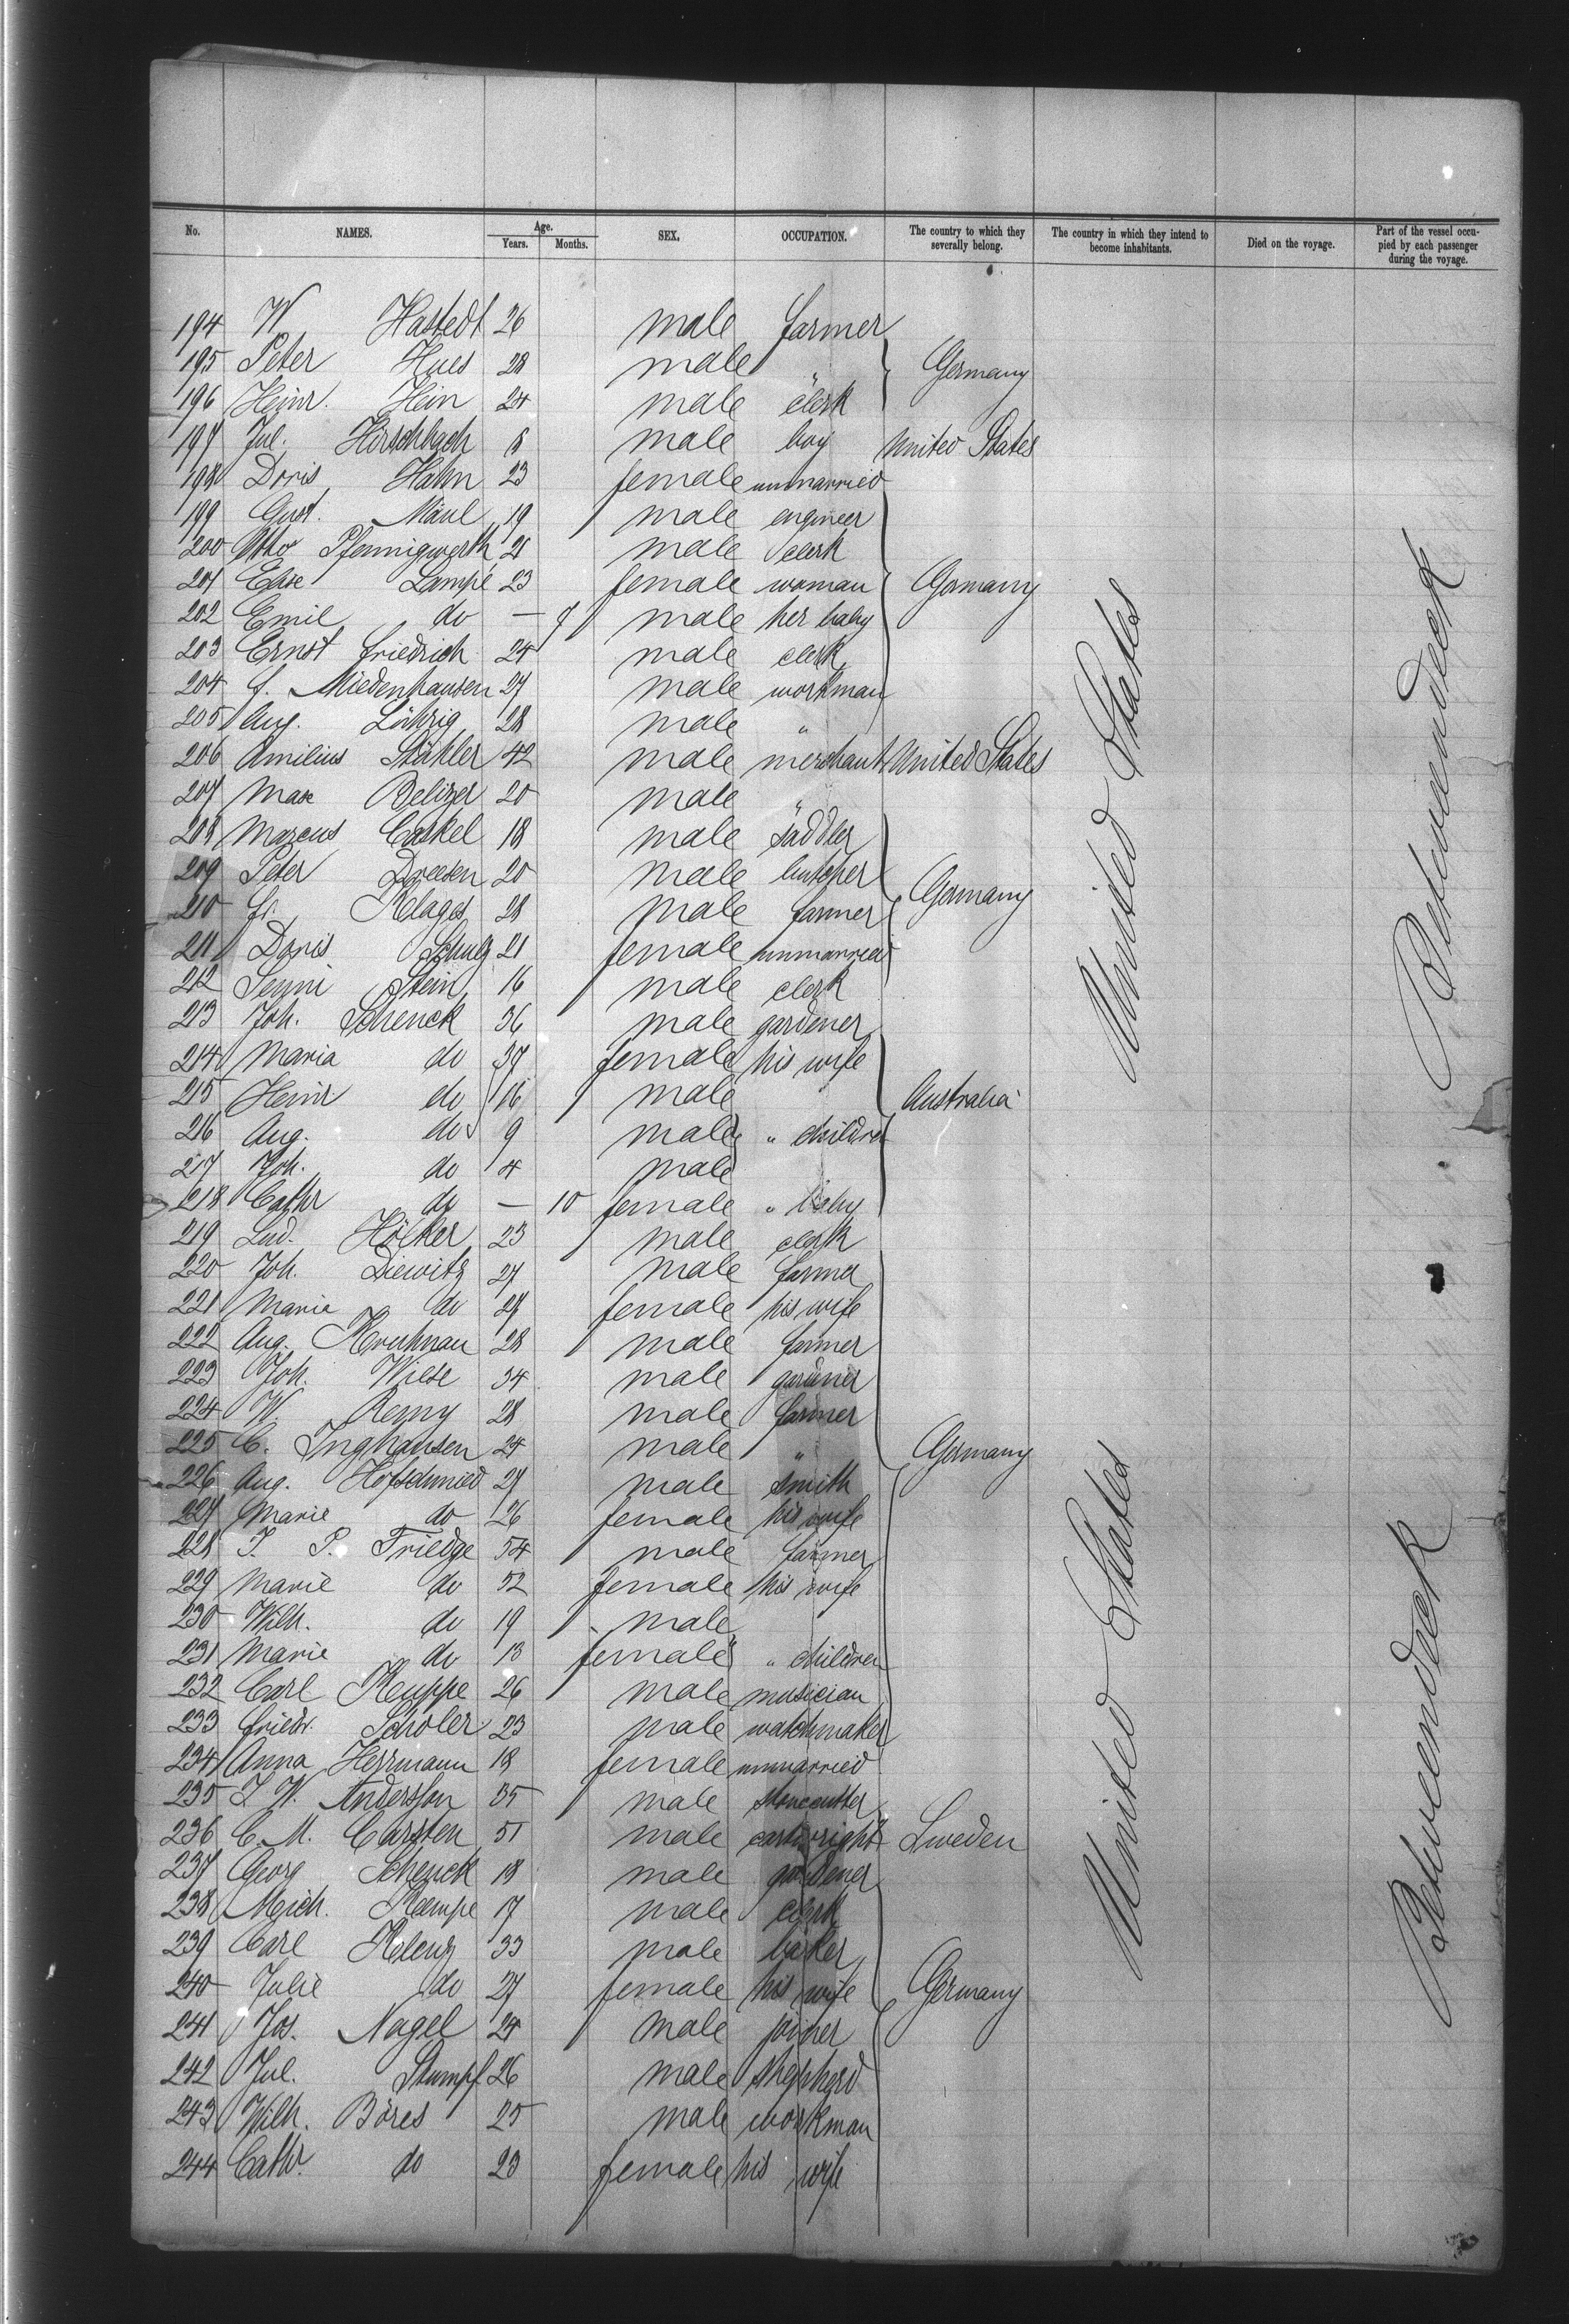 No. NAMES. Age. Years. Months. SEX. OCCUPATION. The country to which they severally belong. The country in which they intend to become inhabitants. Died on the voyage. Part of the vessel occupied by each passenger during the voyage.
194 W Hastedt 26 male farmer
195 Peter Hues 28 male " Germany
196 Heinr. Hein 24 male clerk
197 Jul. Hirschbach 8 male boy United States
198 Doris Hahn 23 female unmarried
199 Gust. Maul 19 male engineer
200 Otto Pfennigwerth 21 male clerk
201 Else Lampe 23 female woman Germany
202 Emil do — 9 male her baby
203 Ernst Friedrich 24 male clerk
204 f. Miedenhausen 27 male workman
205 Aug. Löhrig 28 male "
206 Amilius Stähler 42 male merchant United States
207 Max Belizer 20 male "
208 Marcus Caskel 18 male saddler
209 Peter Dreesen 20 male butcher Germany
210 fr. Klages 28 male farmer
211 Doris Schulz 21 female unmarried
212 Senni Stein 16 male clerk
213 Joh. Schenck 36 male gardener
214 Maria do 37 female his wife
215 Heinr do 16 male Australia
216 Aug. do 9 male " children
217 Joh. do 4 male
218 Cathr do — 10 female " baby
219 Lud. Hölker 23 male clerk
220 Joh. Diewitz 27 male farmer
221 Marie do 27 female his wife
222 Aug. 28 male farmer
223 Joh. Wiese 34 male gardener
224 W. Remy 28 male farmer
225 C. Inghausen 24 male " Germany
226 Aug. Hofschmied 27 male smith
227 Marie do 26 female his wife
228 J. P. Friedge 54 male farmer
229 Marie do 52 female his wife
230 Wilh. do 19 male
231 Marie do 13 female " children
232 Carl Keuppe 26 male musician
233 Friedr. Scholer 23 male watchmaker
234 Anna Herrmann 18 female unmarried
235 J. W. Andersson 35 male stonecutter
236 C. M. Carsten 51 male cartwright Sweden
237 Georg Schenck 18 male gardener
238 Mich. Kempe 17 male clerk
239 Carl Klenz 33 male baker
240 Julie do 27 female his wife Germany
241 Jos. Nagel 24 male joiner
242 Jul. Stumpf 26 male shepherd
243 Wilh. Böres 25 male workman
244 Cathr. do 23 female his wife
United States
Betweendeck
United States
Betweendeck